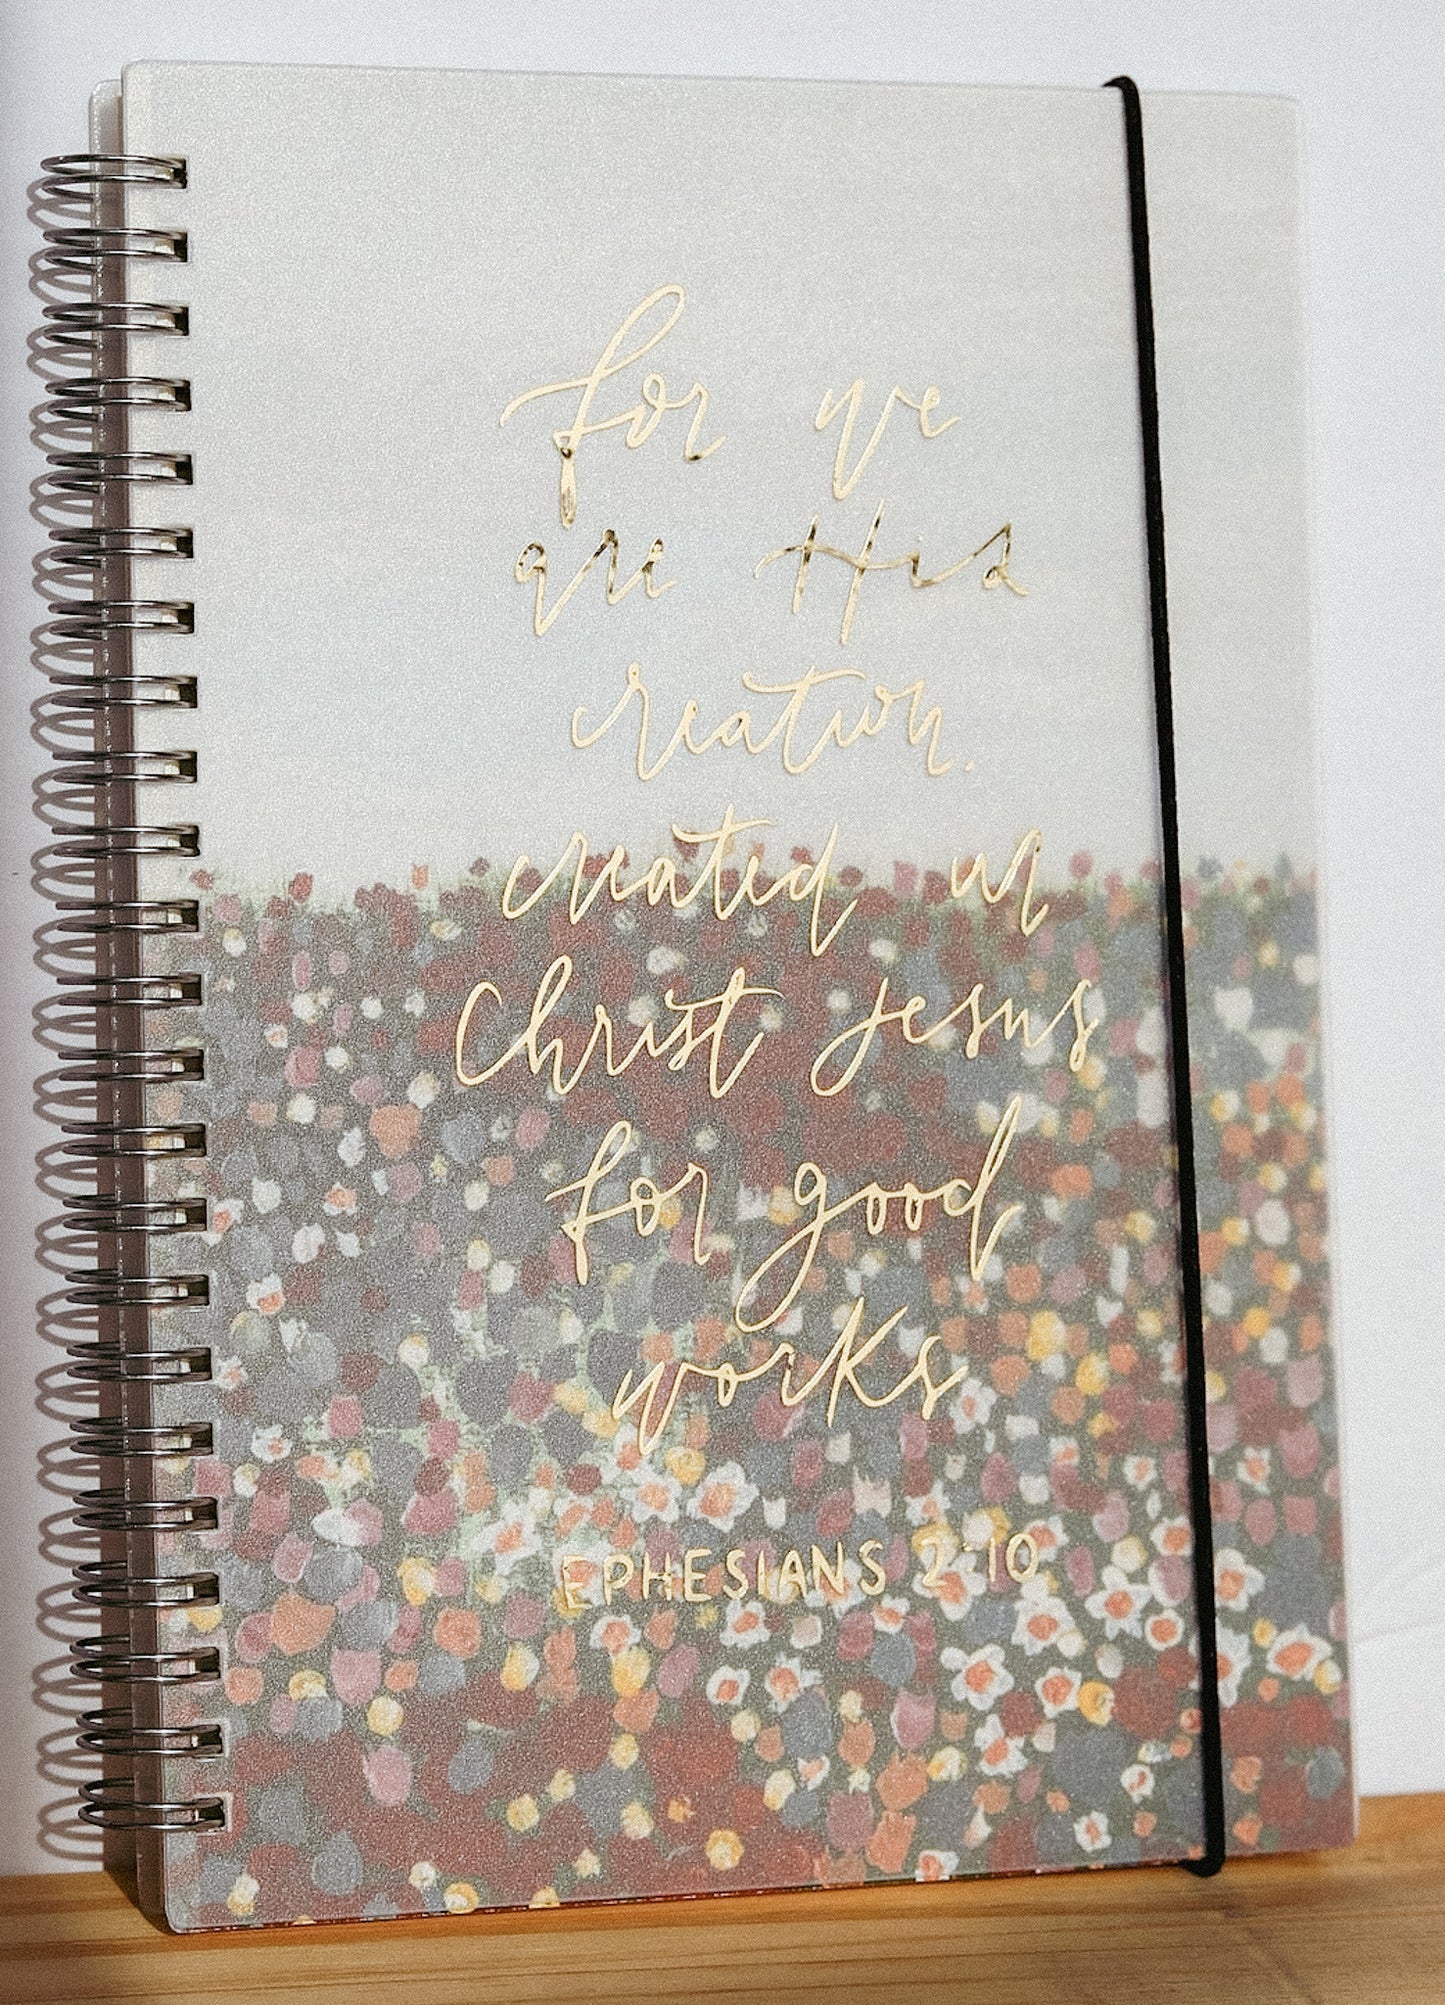 for we
are His
creation.
created in
Christ Jesus
for good
works
EPHESIANS 2:10